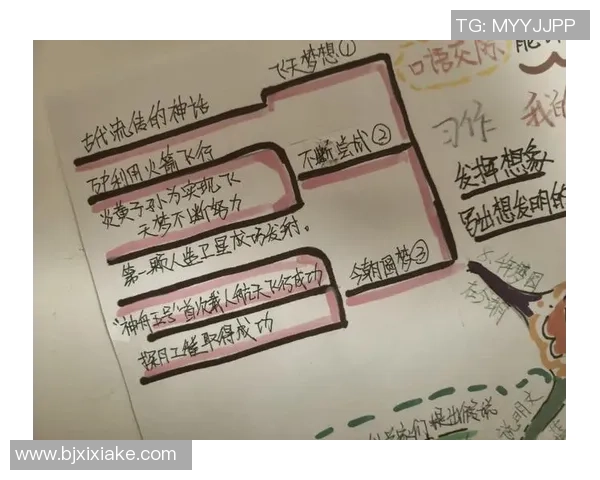 TG: MYYJJPP
飞天梦想①
古代流传的神话
万户利用火箭飞行
不断尝试②
炎黄子孙为实现飞
天梦不断努力
第一颗人造卫星成功发射.
今朝圆梦③
"神舟五号"首次载人航天飞行成功
探月工程取得成功
口语交际
习作
我的
发挥想象
写出想发明的
千年梦圆
在今朝
提出假说
说明文
www.bjxixiake.com